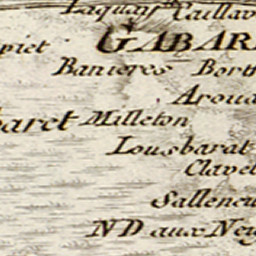 Laquay Taillav
piet GABAR
Banieres Borth
Aroua
baret Milleton
Lousbarat
Clavel
Salleneu
ND aux Ney